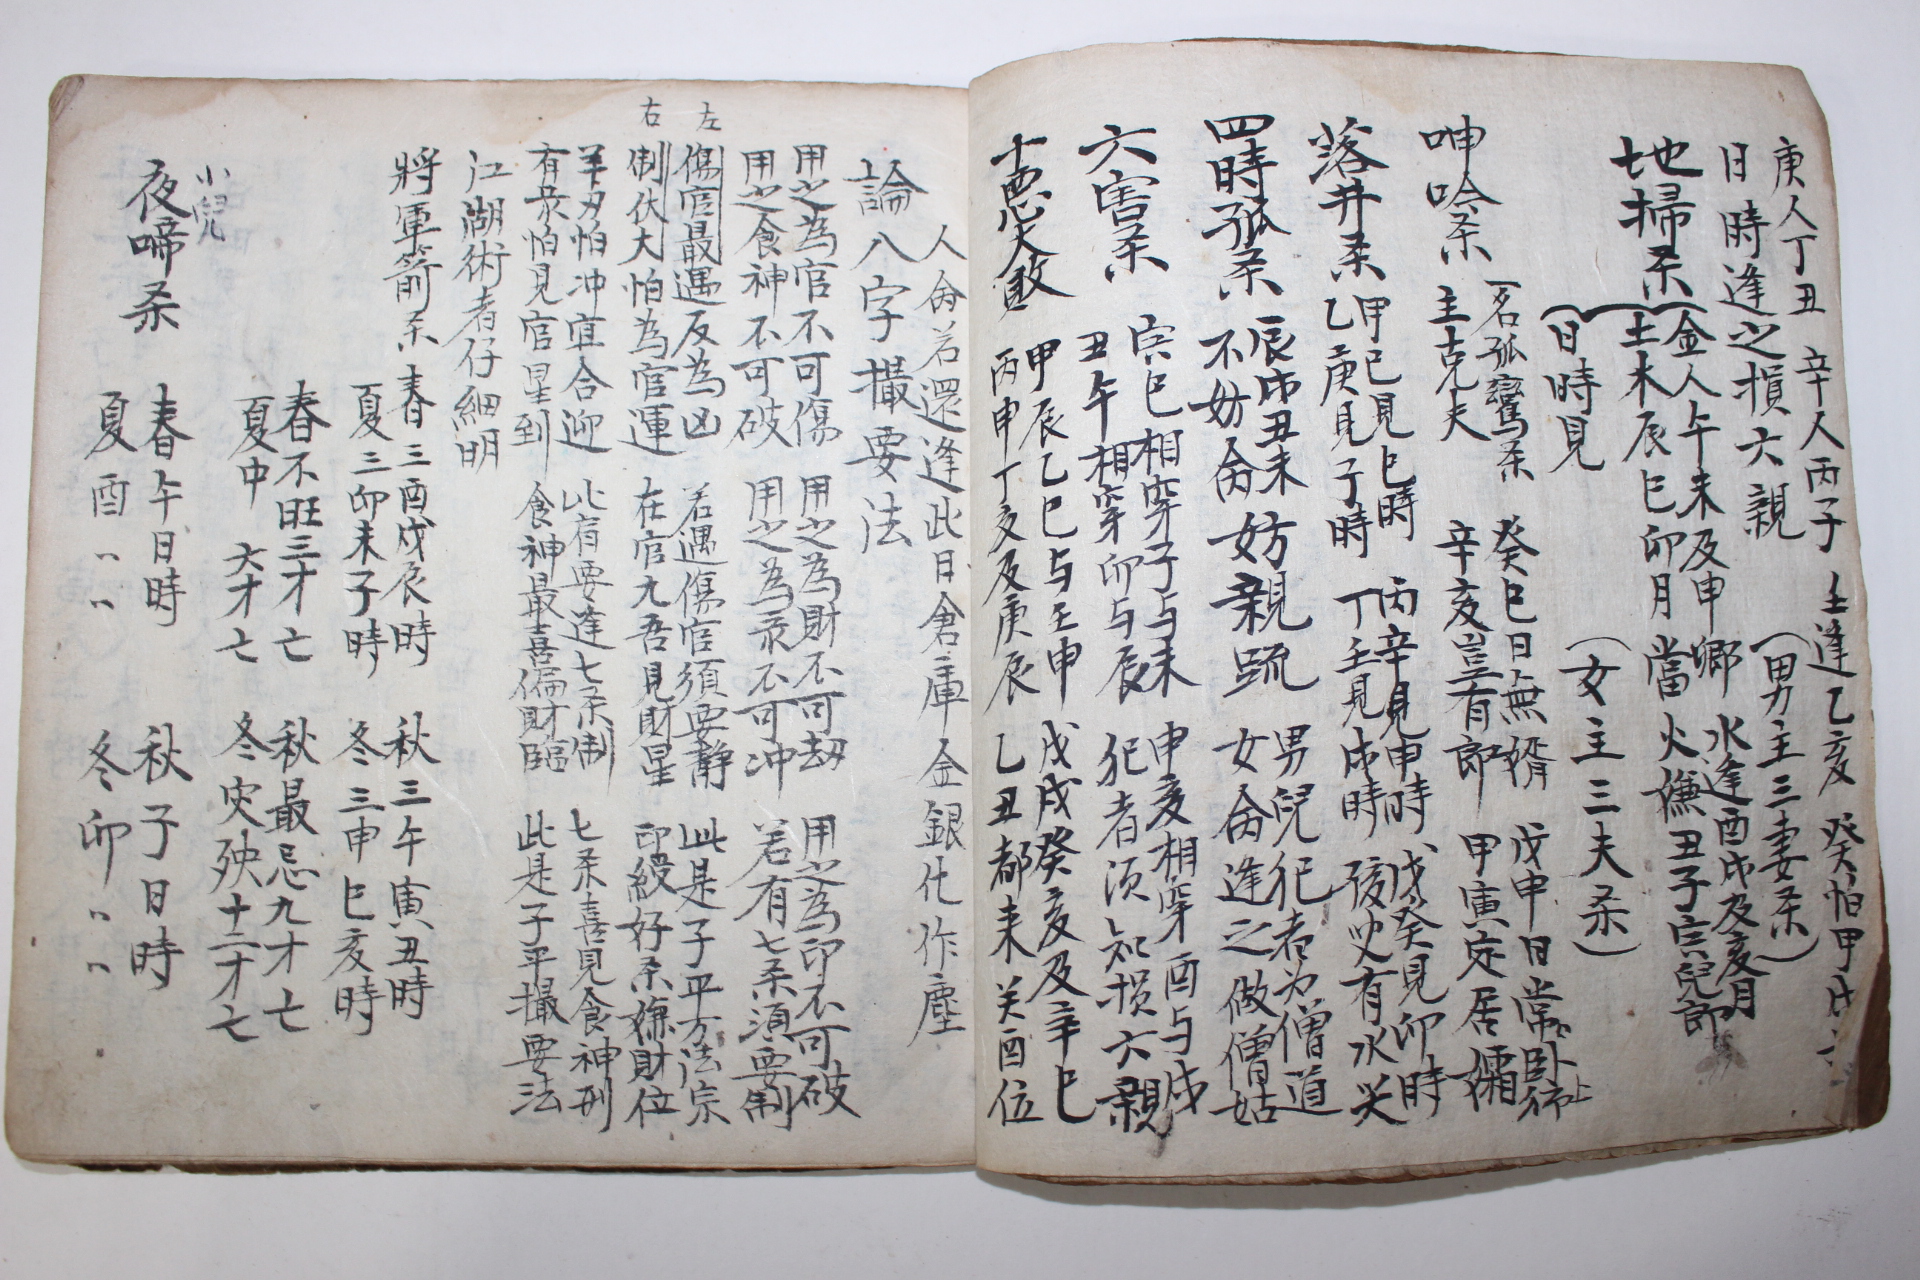 庚人丁丑 辛人丙子 壬逢乙亥 癸怕甲戌
日時逢之損六親
地掃杀
金人午未及申鄉 水逢酉戌及亥月
土木辰巳卯月當 火嫌丑子寅兒郎
(日時見
(男主三妻杀)
(女主三夫杀)
呻吟杀
一名孤鸞杀
主克夫
癸巳日無婿 戊申日常卧床上
辛亥豈有郎 甲寅定居孀
落井杀
甲己見巳時 丙辛見申時 戊癸見卯時
乙庚見子時 丁壬見戌時 孩児有水災
四時孤杀
辰戌丑未妨親疏 男兒犯者为僧道
不妨命 女命逢之做僧姑
六害杀
寅巳相穿子与未 申亥相穿酉与戌
丑午相穿卯与辰 犯者须知损六親
十惡大敗
甲辰乙巳与壬申 戊戌癸亥及辛巳
丙申丁亥及庚辰 乙丑都来关酉位
人命若還逢此日倉庫金銀化作塵
論八字撮要法
用之為官不可傷 用之為財不可劫 用之為印不可破
用之食神不可破 用之為录不可冲 若有七杀須要制
左
傷官最遇反為凶 若遇傷官須要静 此是子平方法宗
右
制伏大怕為官運 在官九吾見財星 印綬好杀嫌財位
羊刃怕冲宜合迎 此有要逢七杀制 七杀喜見食神刑
有录怕見官星到 食神最喜偏財臨 此是子平撮要法
江湖術者仔細明
將軍箭杀
春三酉戌辰時 秋三午寅丑時
夏三卯未子時 冬三申巳亥時
春不旺三才亡 秋最忌九才亡
夏中 六才亡 冬灾殃十二才亡
小兒
夜啼杀
春午日時 秋子日時
夏酉〃〃 冬卯〃〃